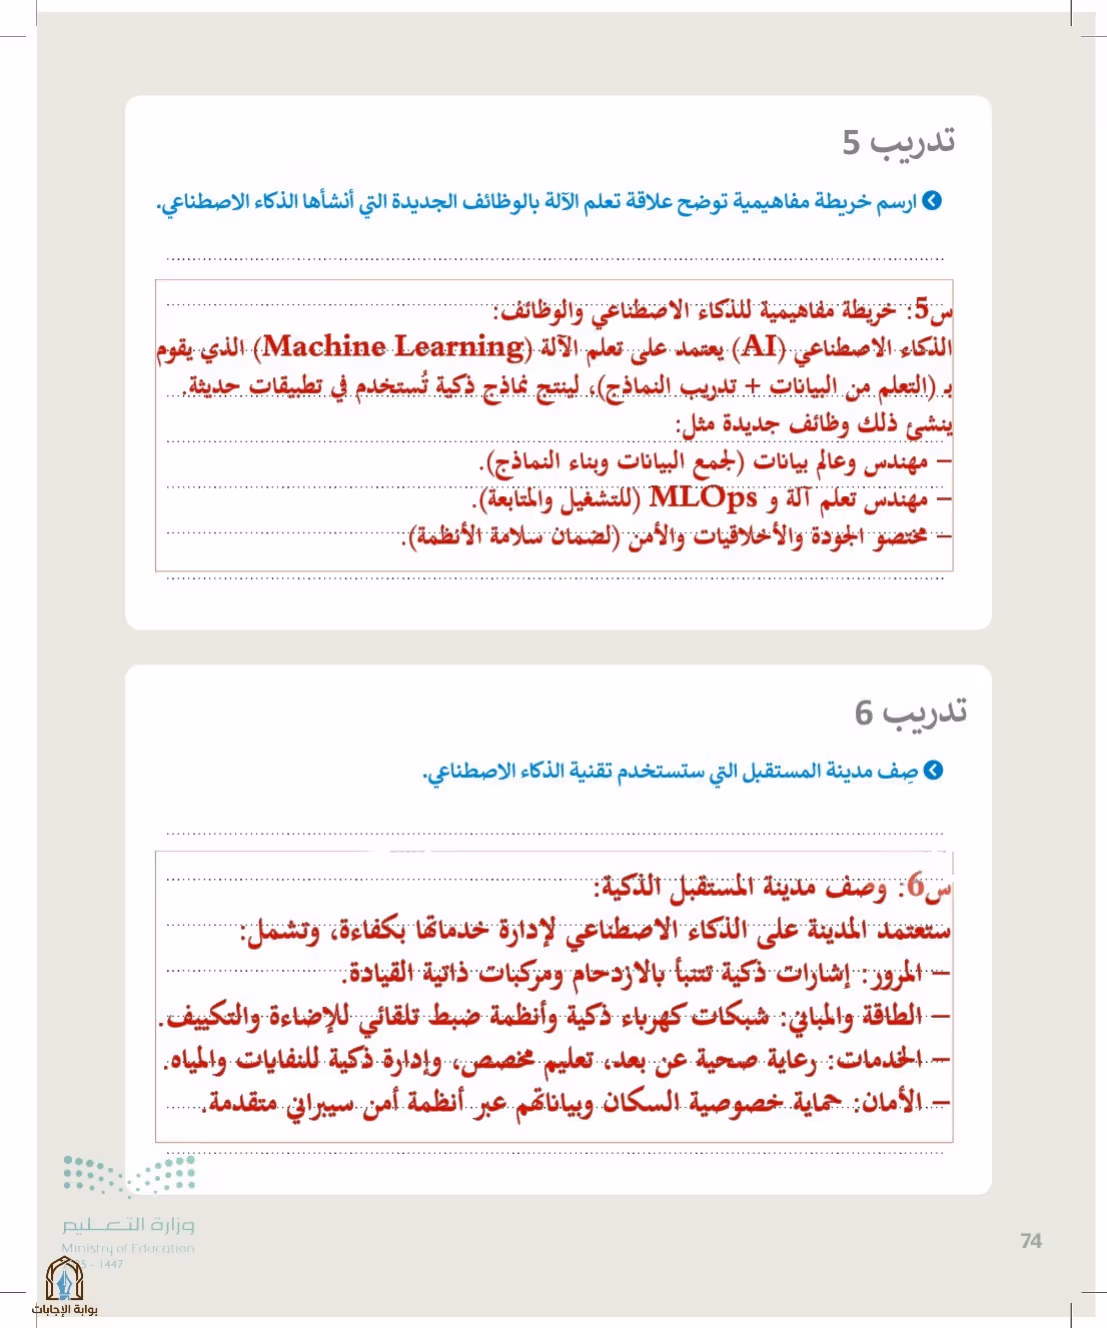 تدريب 5
ارسم خريطة مفاهيمية توضح علاقة تعلم الآلة بالوظائف الجديدة التي أنشأها الذكاء الاصطناعي.
س5: خريطة مفاهيمية للذكاء الاصطناعي والوظائف:
الذكاء الاصطناعي (AI) يعتمد على تعلم الآلة (Machine Learning) الذي يقوم
بـ (التعلم من البيانات + تدريب النماذج)، لينتج نماذج ذكية تُستخدم في تطبيقات حديثة.
ينشئ ذلك وظائف جديدة مثل:
– مهندس وعالم بيانات (لجمع البيانات وبناء النماذج).
– مهندس تعلم آلة و MLOps (للتشغيل والمتابعة).
– مختصو الجودة والأخلاقيات والأمن (لضمان سلامة الأنظمة).
تدريب 6
صِف مدينة المستقبل التي ستستخدم تقنية الذكاء الاصطناعي.
س6: وصف مدينة المستقبل الذكية:
ستعتمد المدينة على الذكاء الاصطناعي لإدارة خدماتها بكفاءة، وتشمل:
– المرور: إشارات ذكية تتنبأ بالازدحام ومركبات ذاتية القيادة.
– الطاقة والمباني: شبكات كهرباء ذكية وأنظمة ضبط تلقائي للإضاءة والتكييف.
– الخدمات: رعاية صحية عن بعد، تعليم مخصص، وإدارة ذكية للنفايات والمياه.
– الأمان: حماية خصوصية السكان وبياناتهم عبر أنظمة أمن سيبراني متقدمة.
وزارة التعليم
Ministry of Education
5 - 1447
74
بوابة الإجابات